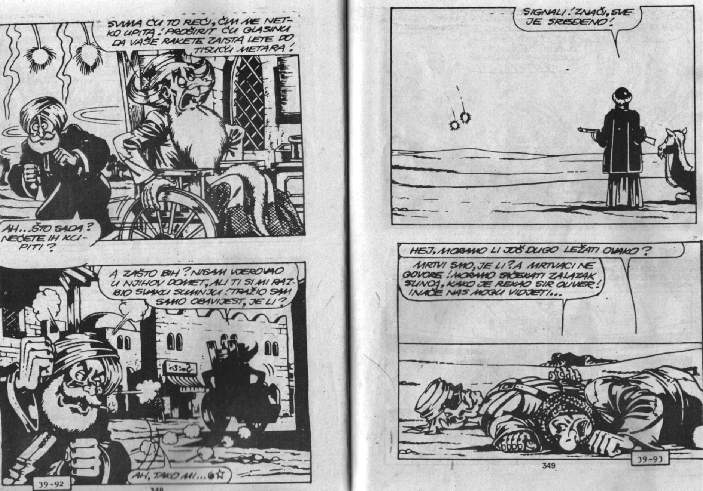 SVIMA ĆU TO REĆI, ČIM ME NET-
KO UPITA! PROŠIRIT ĆU GLASINU
DA VAŠE RAKETE ZAISTA LETE DO
TISUĆU METARA!
AH...ŠTO SADA?
NEĆETE IH KU-
PITI?
A ZAŠTO BIH? NISAM VJEROVAO
U NJIHOV DOMET, ALI TI SI MI RAZ-
BIO SVAKU SUMNJU! TRAŽIO SAM
SAMO OBAVIJEST, JE LI?
AH, TAKO MI...6☆
39-92
348
SIGNALI! ZNAČI, SVE
JE SREĐENO!
HEJ, MORAMO LI JOŠ DUGO LEŽATI OVAKO?
MRTVI SMO, JE LI? A MRTVACI NE
GOVORE! MORAMO SAČEKATI ZALAZAK
SUNCA, KAKO JE REKAO SIR OLIVER!
INAČE NAS MOGU VIDJETI...
349
39-93